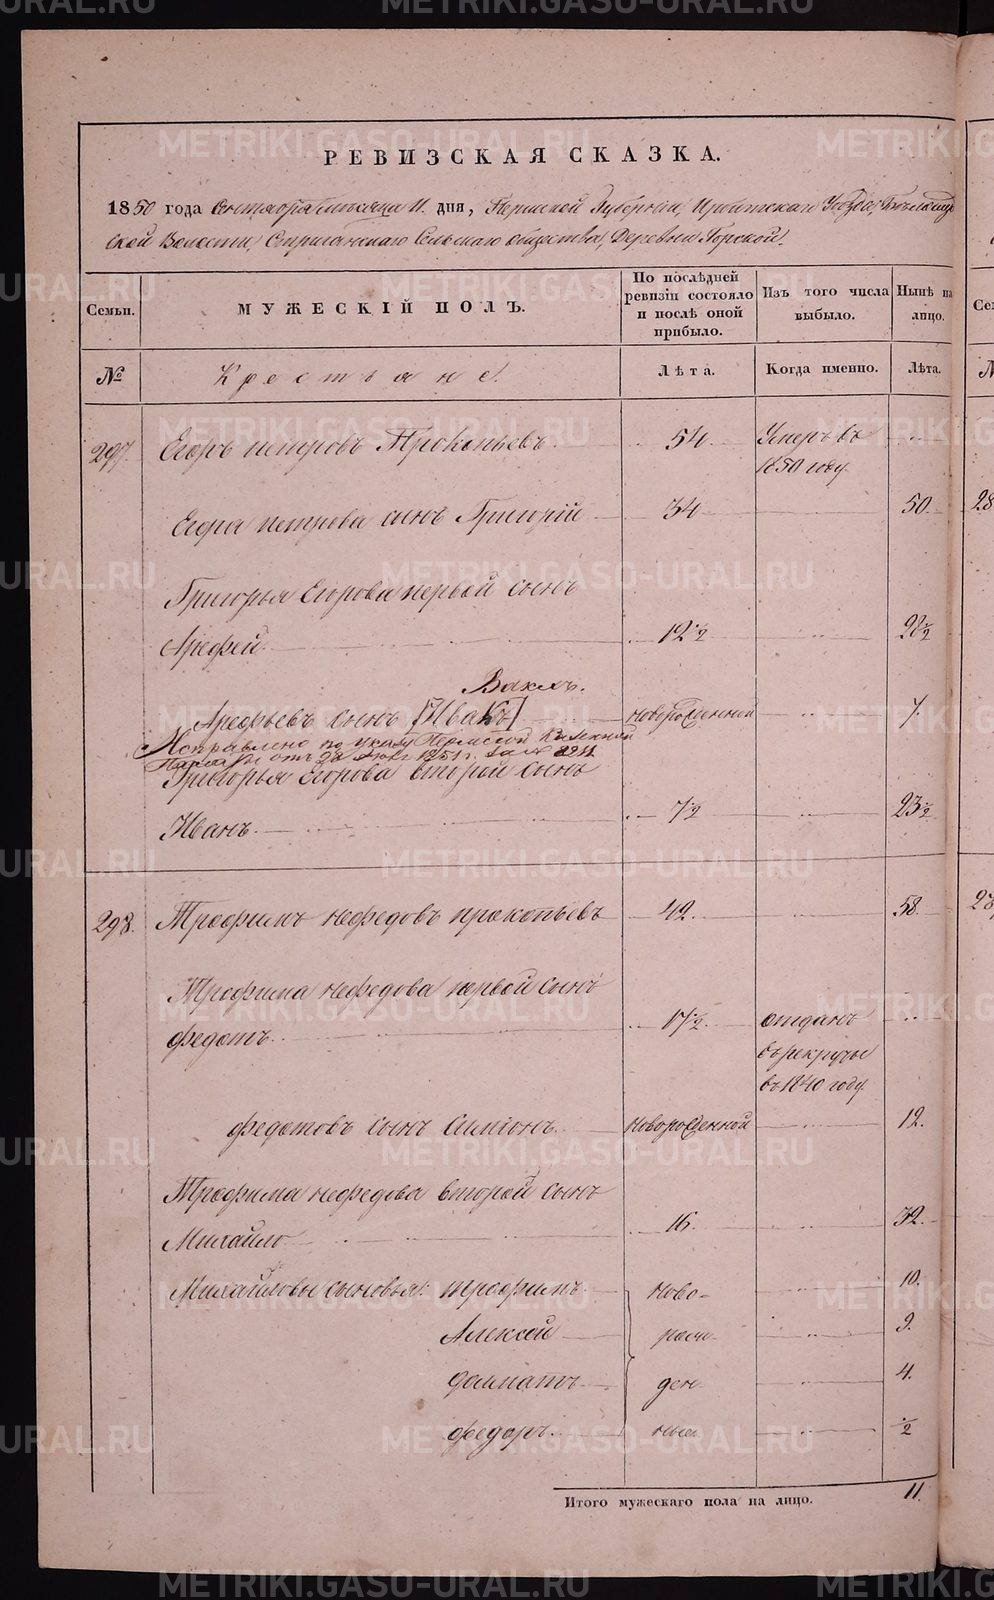 РЕВИЗСКАЯ СКАЗКА.
1850 года Сентября месяца 11. дня, Пермской Губернии, Ирбитскаго Уезда, Белослуд-
ской Волости, Стриганскаго Сельскаго общества, Деревни Горской.
Семьи.
МУЖЕСКІЙ ПОЛЪ.
По послѣдней ревизіи состояло и послѣ оной прибыло.
Изъ того числа выбыло.
Нынѣ на лицо.
№
Крестьяне.
Лѣта.
Когда именно.
Лѣта.
297. Егоръ петровъ Прокопьевъ 54. Умеръ въ
1850 году.
Егора петрова сынъ Григорій 34 50.
Григорья Егорова первой сынъ
Арефей 12½ 28½
Вакхъ.
Арефьевъ сынъ [Иванъ] новорожденной 7.
Исправлено по указу Пермской Казенной
Палаты отъ
Григорья Егорова второй сынъ
Иванъ. 7½ 23½
298. Трофимъ нефедовъ прокопьевъ 42. 58.
Трофима нефедова первой сынъ
федотъ. 17½. отданъ
въ рекруты
въ 1840 году.
федотовъ сынъ Симіонъ. новорожденной 12.
Трофима нефедова второй сынъ
Михайло 16. 32.
Михайловы сыновья: трофимъ ново- 10.
Алексей рож- 9.
далматъ. ден- 4.
федоръ. ныя ½
Итого мужескаго пола на лицо. 11.
METRIKI.GASO-URAL.RU